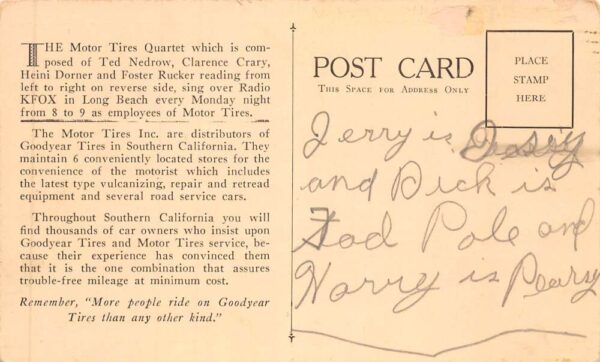 THE Motor Tires Quartet which is com-
posed of Ted Nedrow, Clarence Crary,
Heini Dorner and Foster Rucker reading from
left to right on reverse side, sing over Radio
KFOX in Long Beach every Monday night
from 8 to 9 as employees of Motor Tires.
The Motor Tires Inc. are distributors of
Goodyear Tires in Southern California. They
maintain 6 conveniently located stores for the
convenience of the motorist which includes
the latest type vulcanizing, repair and retread
equipment and several road service cars.
Throughout Southern California you will
find thousands of car owners who insist upon
Goodyear Tires and Motor Tires service, be-
cause their experience has convinced them
that it is the one combination that assures
trouble-free mileage at minimum cost.
Remember, "More people ride on Goodyear
Tires than any other kind."
POST CARD
THIS SPACE FOR ADDRESS ONLY
PLACE
STAMP
HERE
Jerry is
and Dick is
Tad Pole and
Harry is Peary